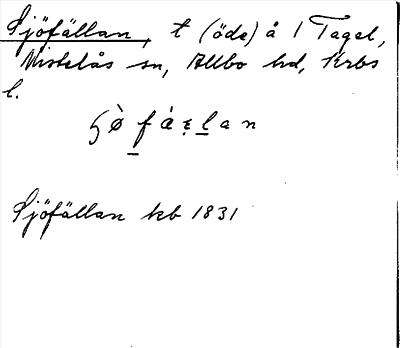 Sjöfällan, t (öde) å 1 Tagel,
Mistelås sn, Allbo hd, Krbs
l.
ɧø̀ fáɛḷan
Sjöfällan kb 1831